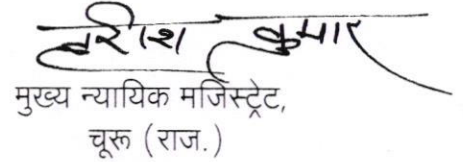 हरीश कुमार
मुख्य न्यायिक मजिस्ट्रेट,
चूरू (राज.)